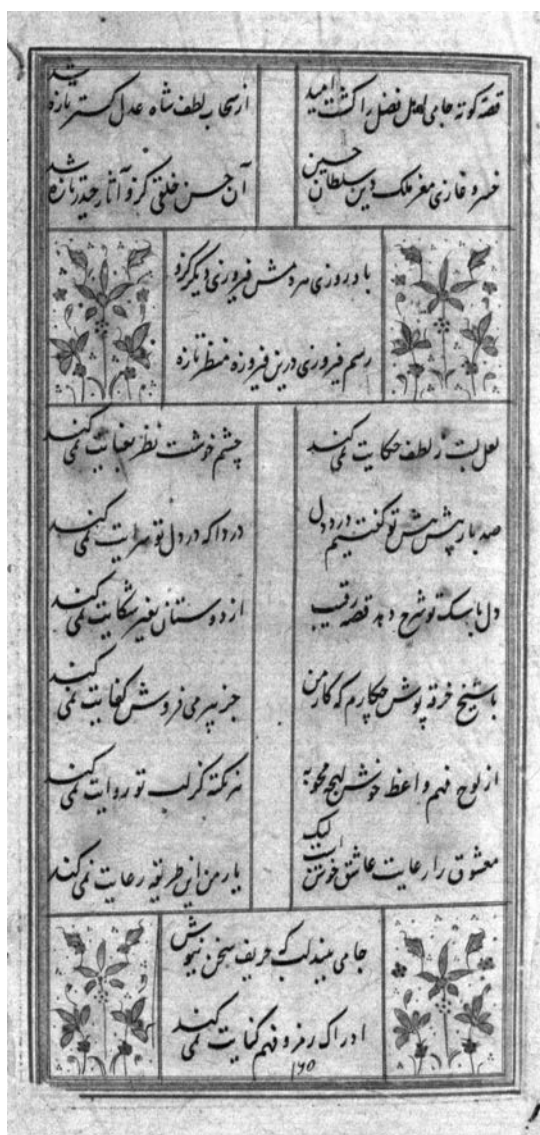 قصه کوته جامی اهل فضل را کشت امید
از سحاب لطف شاه عدل گستر تازه شد
خسرو غازی معز ملک و دین سلطان حسین
آن حسن خلقی کزو آثار حیدر تازه شد
باد روزی هر دمش فیروزی دیگر کزو
رسم فیروزی درین فیروزه منظر تازه
لعل لبت ز لطف حکایت نمی کند
چشم خوشت نظر بعنایت نمی کند
صد بار پیش پیش تو گفتیم درد دل
دردا که در دل تو سرایت نمی کند
دل با سگ تو شرح دهد قصه رقیب
از دوستان بغیر شکایت نمی کند
با شیخ خرقه پوش چکارم که کار من
جز پیر می فروش کفایت نمی کند
از لوح فهم واعظ خوش لهجه محو به
هر نکته کز لب تو روایت نمی کند
معشوق را رعایت عاشق خوش است لیک
یار من این طریقه رعایت نمی کند
جامی ببند لب که حریف سخن نیوش
ادراک رمز و فهم کنایت نمی کند
۱۶۵